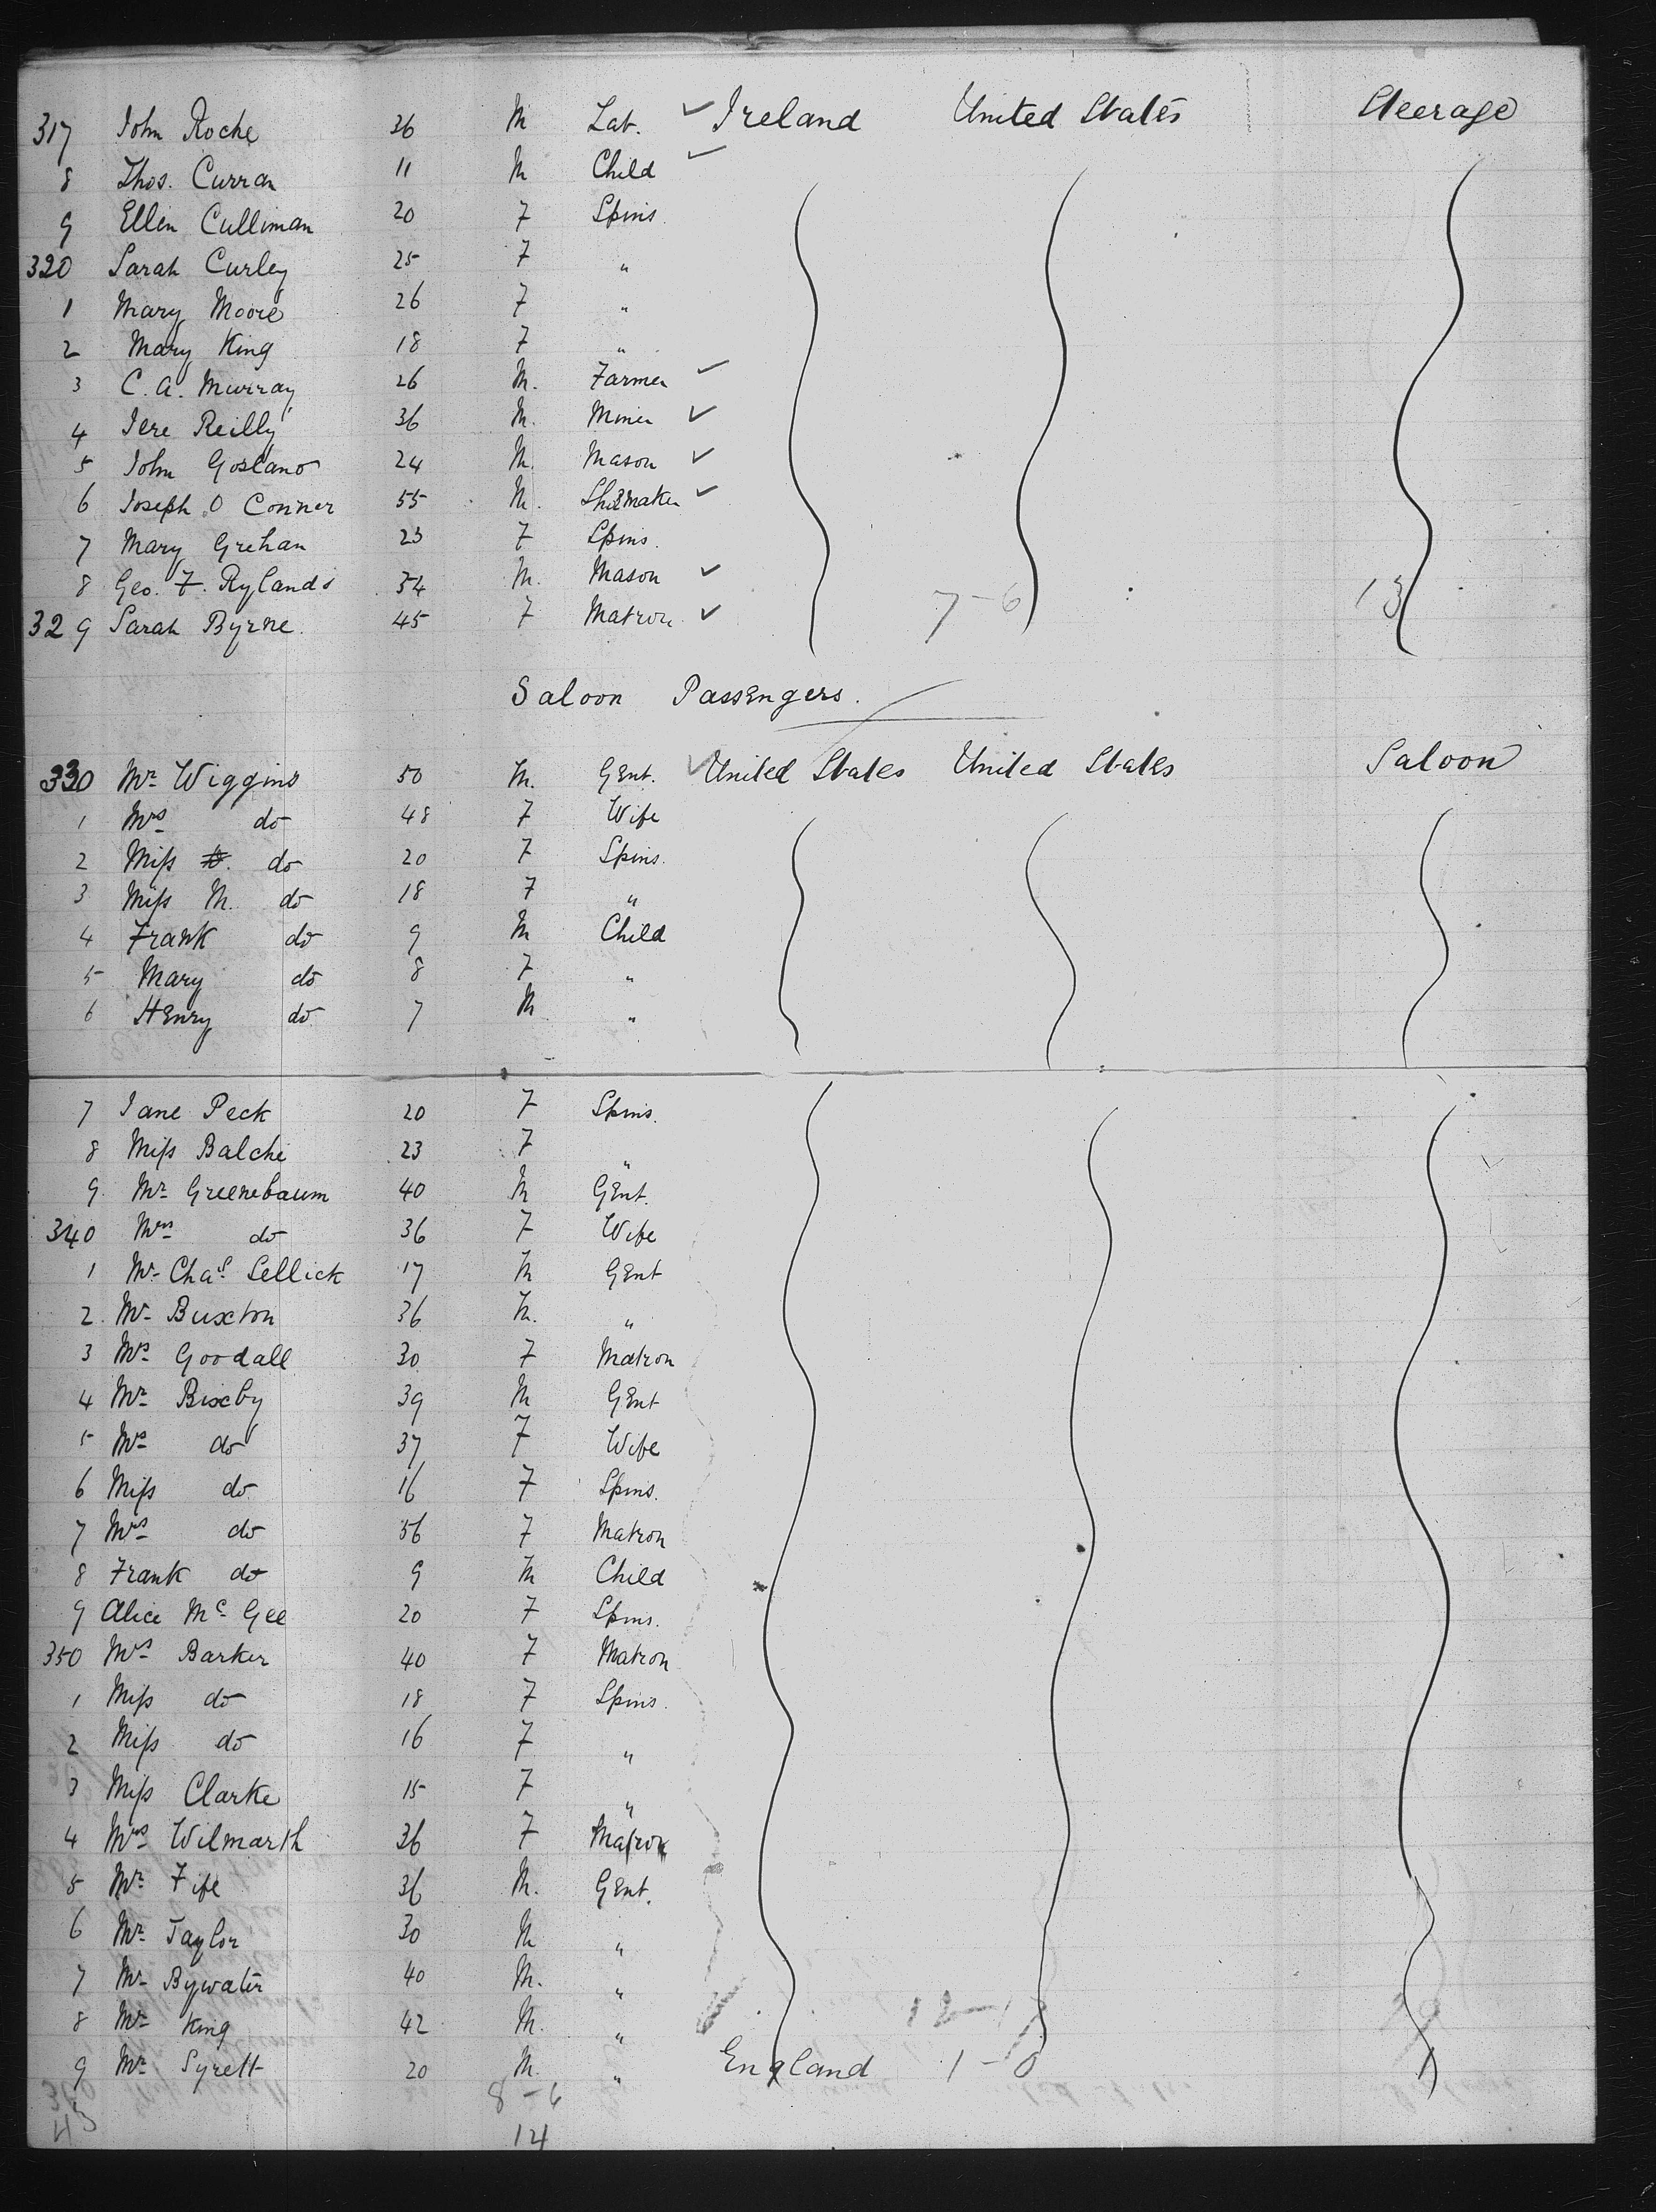 317 John Roche 36 M Lab. ✓ Ireland United States Steerage
8 Thos. Curran 11 M Child ✓
9 Ellen Culliman 20 F Spins.
320 Sarah Curley 25 F "
1 Mary Moore 26 F "
2 Mary King 18 F "
3 C. A. Murray 26 M. Farmer ✓
4 Jere Reilly 36 M. Miner ✓
5 John Goslano 24 M. Mason ✓
6 Joseph O Conner 55 M. Shoemaker ✓
7 Mary Grehan 23 F Spins.
8 Geo. F. Rylands 34 M. Mason ✓ 7-6 13
329 Sarah Byrne. 45 F Matron ✓
Saloon Passengers.
330 Mr Wiggins 50 M. Gent. ✓ United States United States Saloon
1 Mrs do 48 F Wife
2 Miss do 20 F Spins.
3 Miss M. do 18 F "
4 Frank do 9 M Child
5 Mary do 8 F "
6 Henry do 7 M "
7 Jane Peck 20 F Spins.
8 Miss Balche 23 F "
9 Mr Greenebaum 40 M Gent.
340 Mrs do 36 F Wife
1 Mr Chas. Sellick 17 M Gent
2. Mr Buxton 36 M. "
3 Mrs Goodall 30 F Matron
4 Mr Bixby 39 M Gent
5 Mrs do 37 F Wife
6 Miss do 16 F Spins.
7 Mrs do 56 F Matron
8 Frank do 9 M Child
9 Alice Mc Gee 20 F Spins.
350 Mrs Barker 40 F Matron
1 Miss do 18 F Spins.
2 Miss do 16 F "
3 Miss Clarke 15 F "
4 Mrs Wilmarth 36 F Matron
5 Mr Fife 36 M. Gent.
6 Mr Taylor 30 M "
7 Mr Bywater 40 M. "
8 Mr King 42 M. "
9 Mr Syrett 20 M. " England 1-0 1
8-6
14